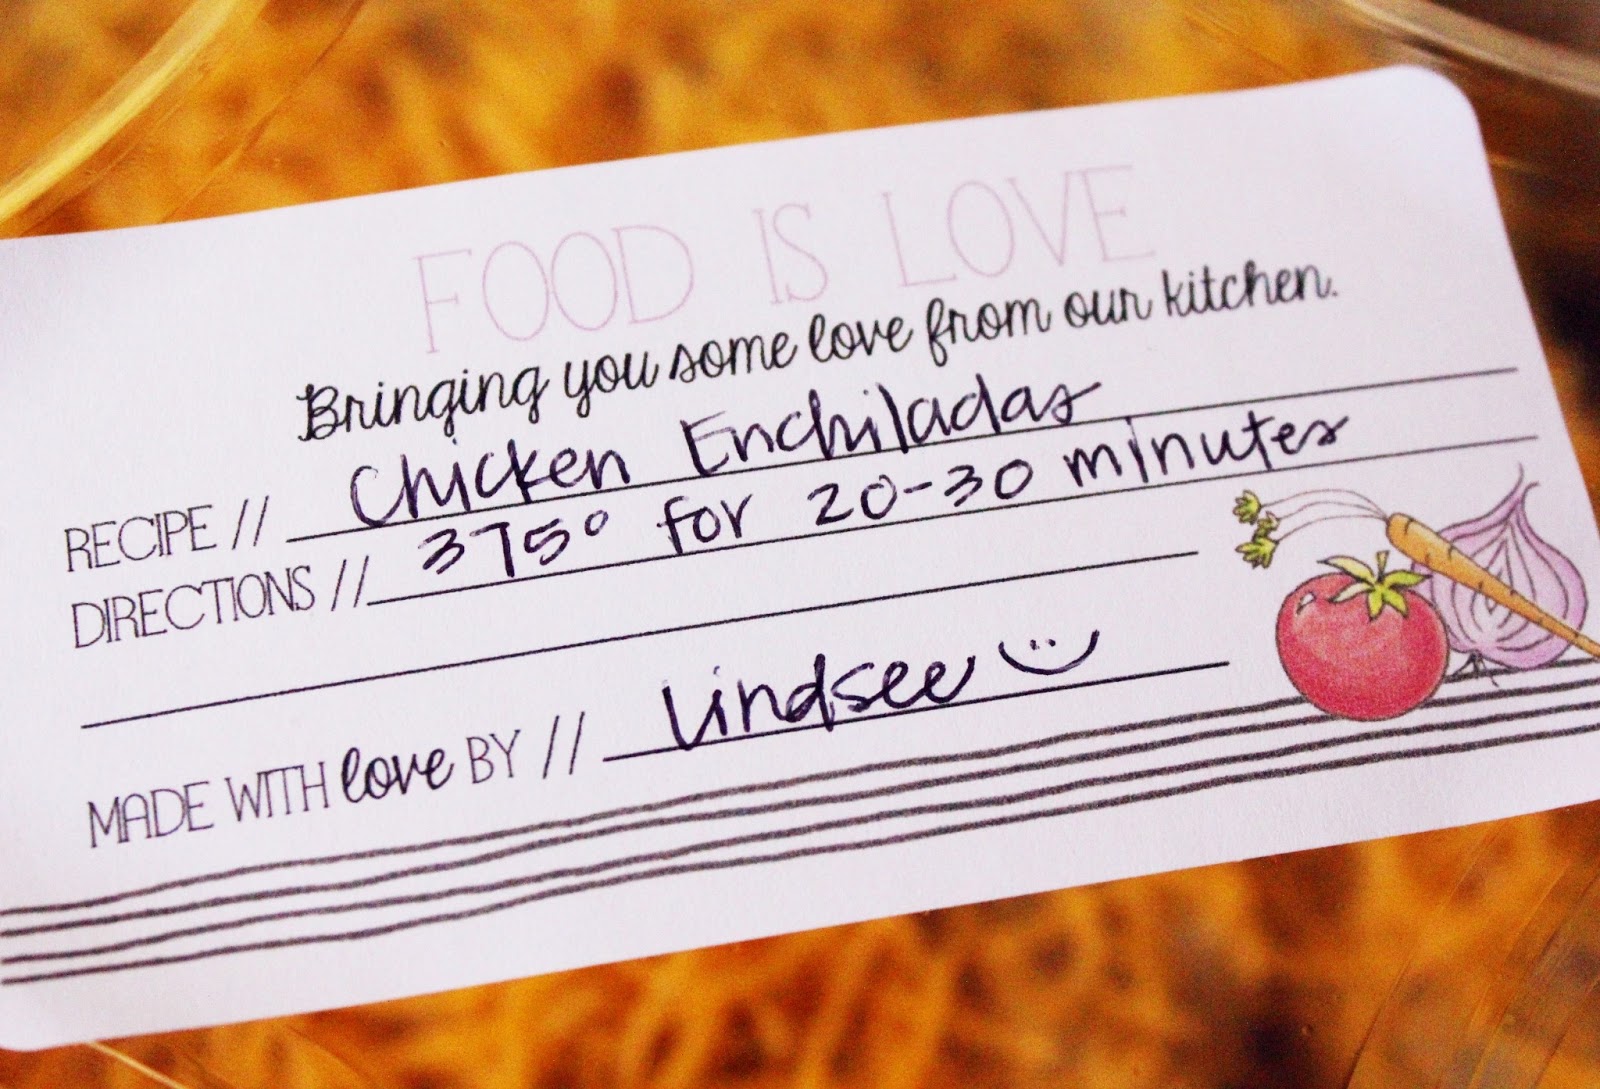 FOOD IS LOVE
Bringing you some love from our kitchen.
RECIPE // Chicken Enchiladas
DIRECTIONS // 375° for 20-30 minutes
MADE WITH love BY // Lindsee